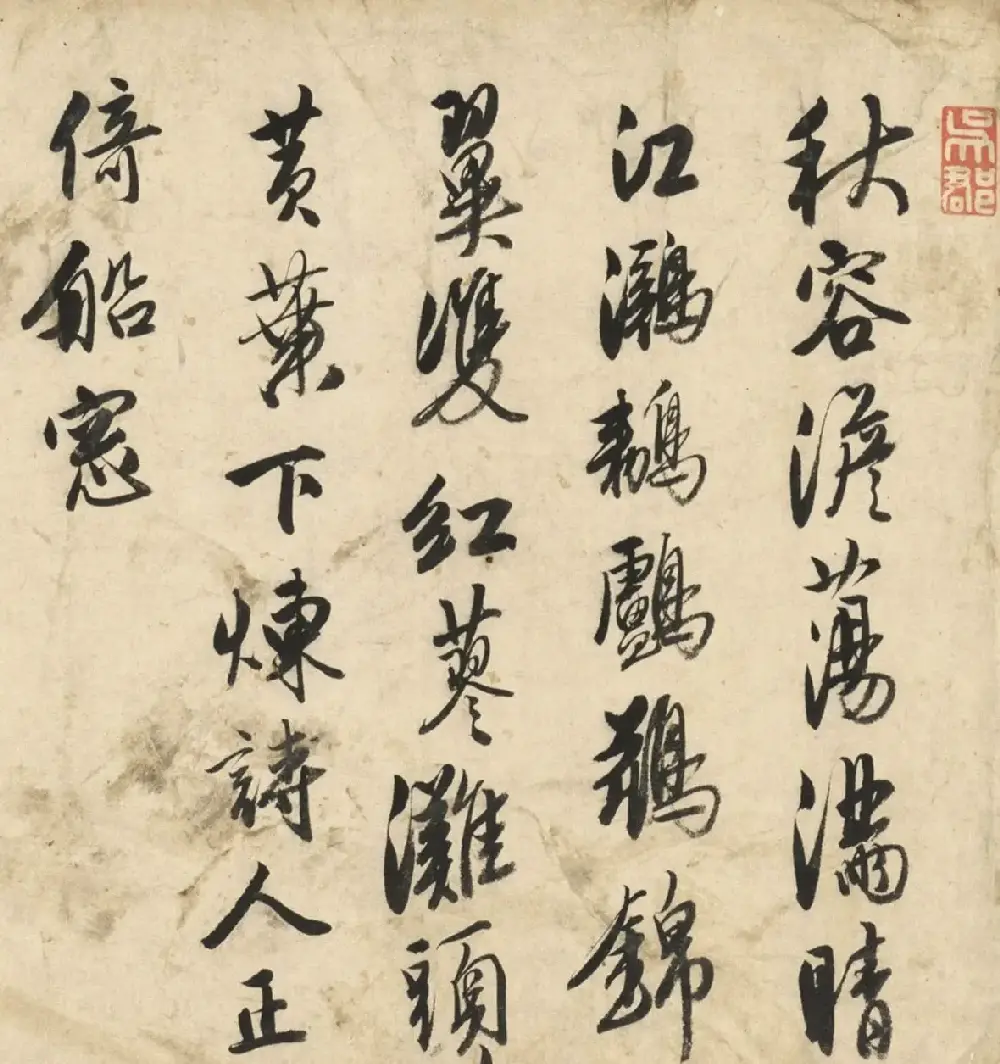 吳郡
秋容澹蕩滿晴
江鸂鶒鸕鷀錦
翼雙紅蓼灘頭
黃葉下煉詩人正
倚船窓